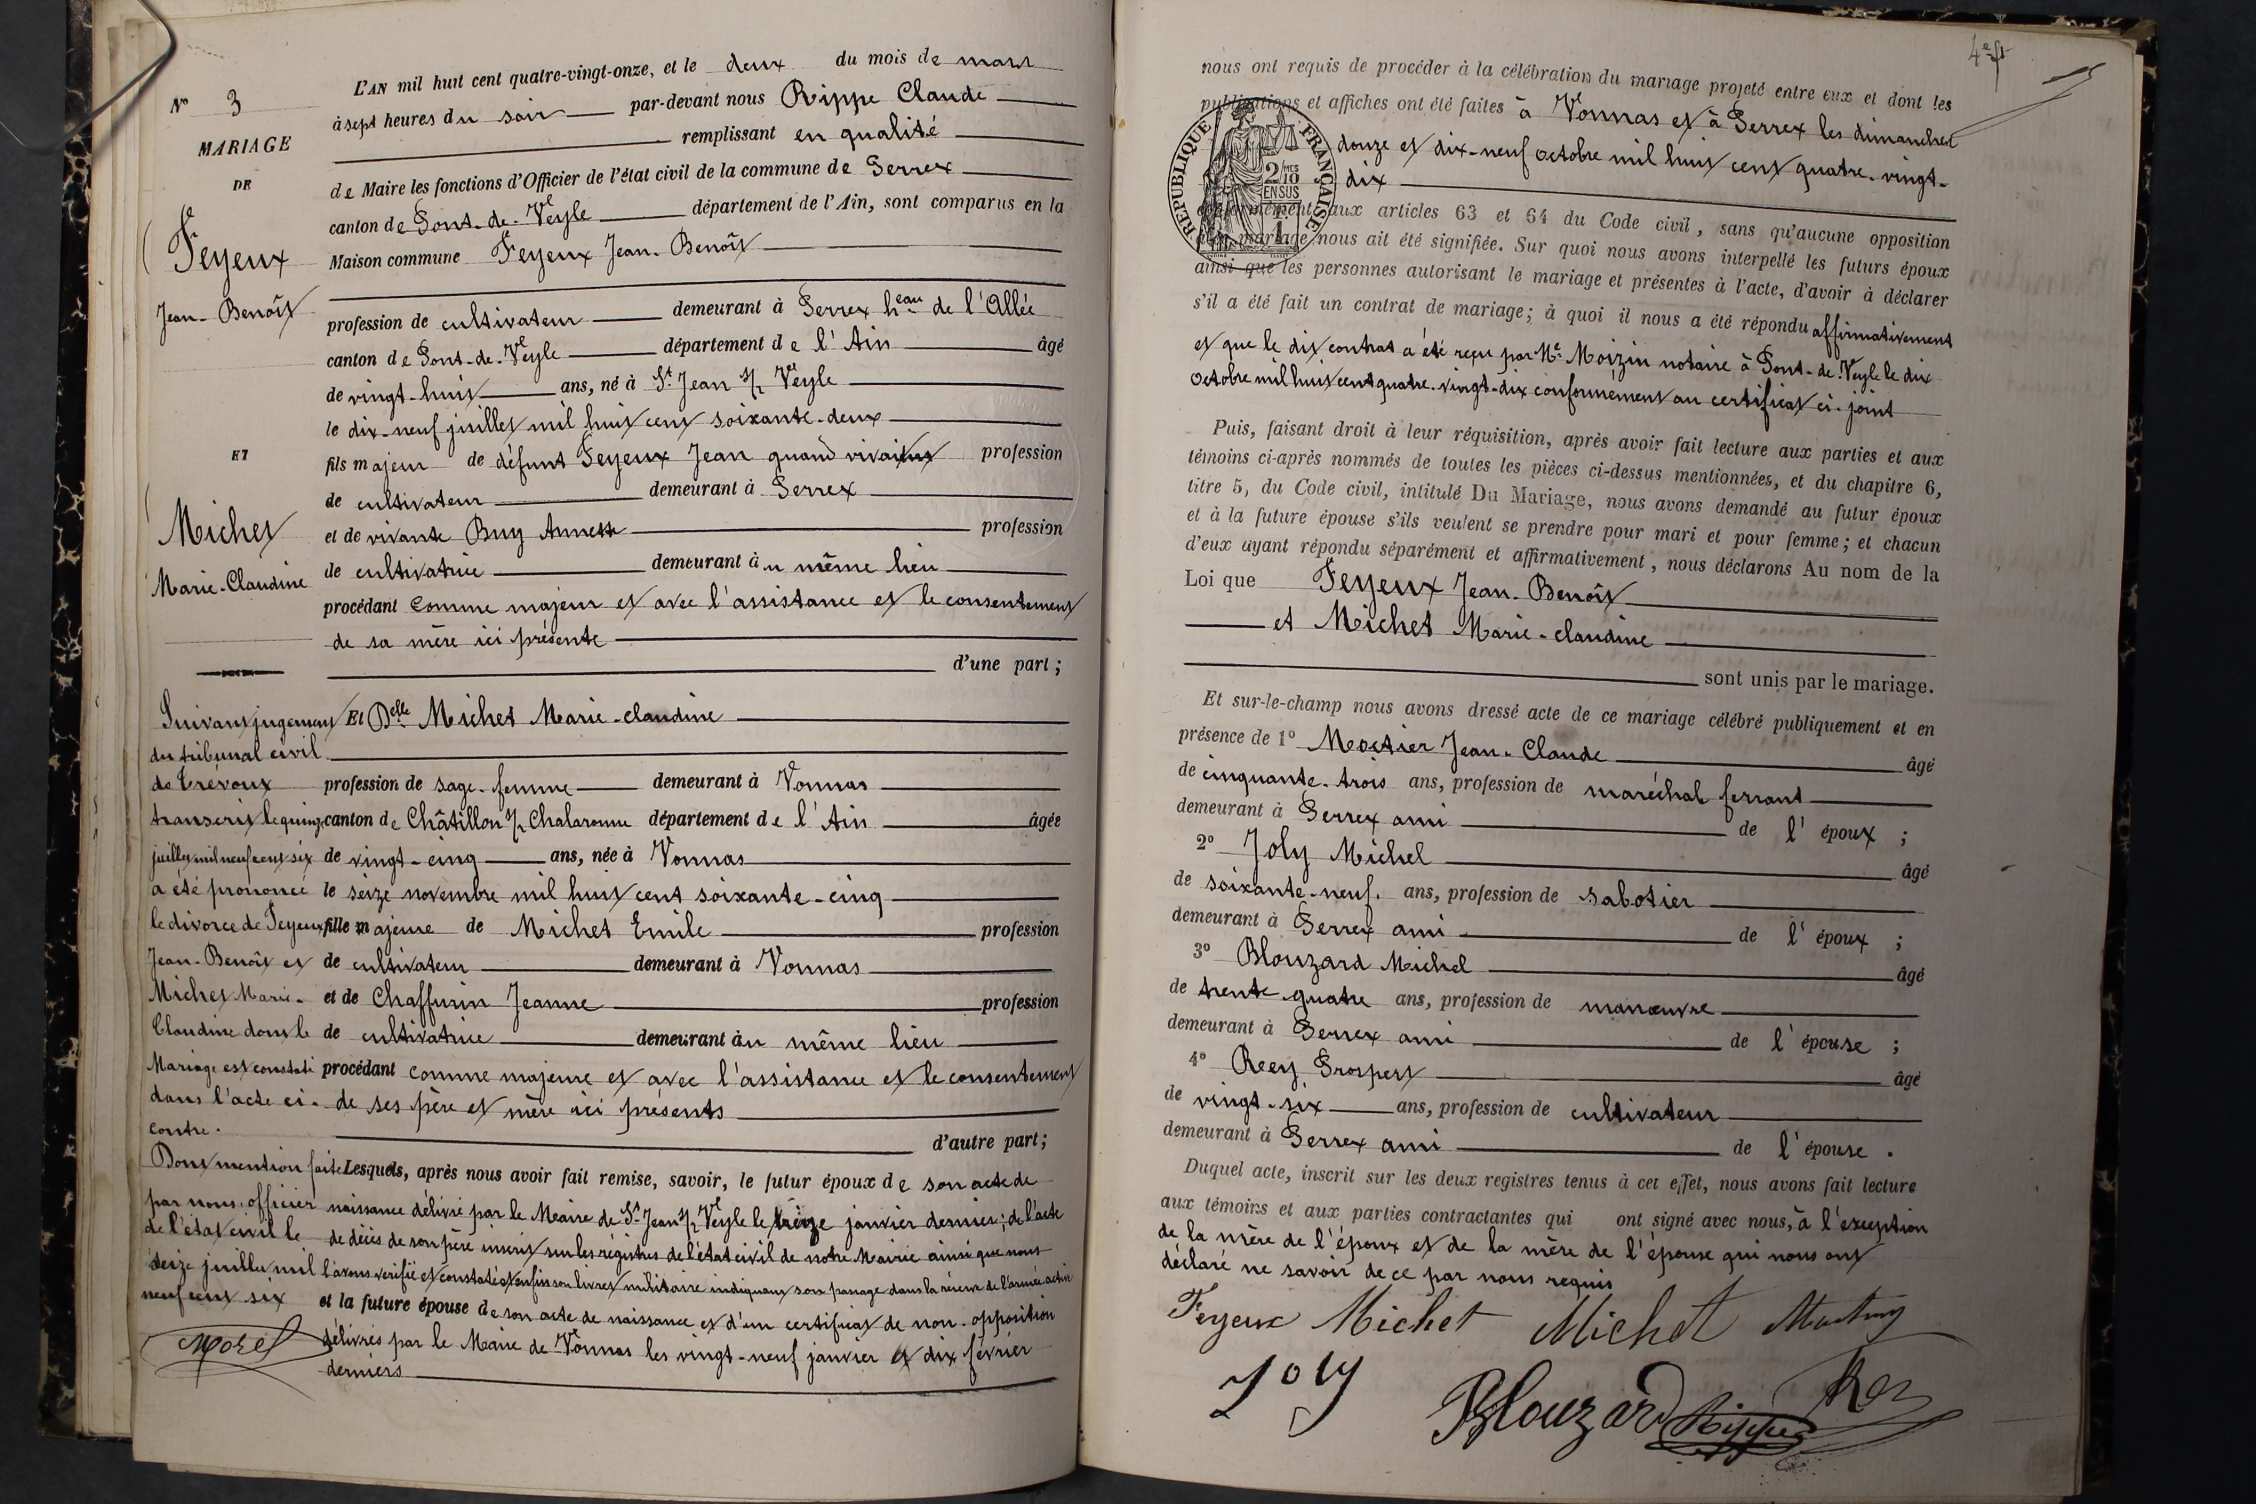 N° 3
MARIAGE
DE
Feyeux
Jean-Benoît
ET
Michet
Marie-Claudine
Suivant jugement
du tribunal civil
de Trévoux
transcrit le quinze
juillet mil neuf cent six
a été prononcé
le divorce de Feyeux
Jean-Benoît et
Michet Marie-
Claudine dont le
Mariage est constaté
dans l'acte ci-
contre.
Dont mention faite
par nous, officier
de l'état civil le
seize juillet mil
neuf cent six
Morel
L'AN mil huit cent quatre-vingt-onze, et le deux du mois de mars
à sept heures du soir par-devant nous Rippe Claude
remplissant en qualité
de Maire les fonctions d'Officier de l'état civil de la commune de Perrex
canton de Pont-de-Veyle département de l'Ain, sont comparus en la
Maison commune Feyeux Jean-Benoît
profession de cultivateur demeurant à Perrex heau de l'Allée
canton de Pont-de-Veyle département de l'Ain âgé
de vingt-huit ans, né à St Jean s/r Veyle
le dix-neuf juillet mil huit cent soixante-deux
fils majeur de défunt Feyeux Jean quand vivait profession
de cultivateur demeurant à Perrex
et de vivante Buy Annette profession
de cultivatrice demeurant au même lieu
procédant comme majeur et avec l'assistance et le consentement
de sa mère ici présente
d'une part;
Et Delle Michet Marie-claudine
profession de sage-femme demeurant à Vonnas
canton de Châtillon s/r Chalaronne département de l'Ain âgée
de vingt-cinq ans, née à Vonnas
le seize novembre mil huit cent soixante-cinq
fille majeure de Michet Emile profession
de cultivateur demeurant à Vonnas
et de Chaffurin Jeanne profession
de cultivatrice demeurant au même lieu
procédant comme majeure et avec l'assistance et le consentement
de ses père et mère ici présents
d'autre part;
Lesquels, après nous avoir fait remise, savoir, le futur époux de son acte de
naissance délivré par le Maire de St Jean s/r Veyle le treize janvier dernier; de l'acte
de décès de son père inscrit sur les régistres de l'état civil de notre Mairie ainsi que nous
l'avons vérifié et constaté et enfin son livret militaire indiquant son passage dans la réserve de l'armée active
et la future épouse de son acte de naissance et d'un certificat de non-opposition
délivrés par le Maire de Vonnas les vingt-neuf janvier et dix février
derniers
4e ft
nous ont requis de procéder à la célébration du mariage projeté entre eux et dont les
publications et affiches ont été faites à Vonnas et à Perrex les dimanches
douze et dix-neuf octobre mil huit cent quatre-vingt-
dix
RÉPUBLIQUE FRANÇAISE
2/10
EN SUS
conformément aux articles 63 et 64 du Code civil, sans qu'aucune opposition
mariage nous ait été signifiée. Sur quoi nous avons interpellé les futurs époux
ainsi que les personnes autorisant le mariage et présentes à l'acte, d'avoir à déclarer
s'il a été fait un contrat de mariage; à quoi il nous a été répondu affirmativement
et que le dit contrat a été reçu par Me Moizin notaire à Pont-de-Veyle le dix
octobre mil huit cent quatre-vingt-dix conformément au certificat ci-joint
Puis, faisant droit à leur réquisition, après avoir fait lecture aux parties et aux
témoins ci-après nommés de toutes les pièces ci-dessus mentionnées, et du chapitre 6,
titre 5, du Code civil, intitulé Du Mariage, nous avons demandé au futur époux
et à la future épouse s'ils veulent se prendre pour mari et pour femme; et chacun
d'eux ayant répondu séparément et affirmativement, nous déclarons Au nom de la
Loi que Feyeux Jean-Benoît
et Michet Marie-claudine
sont unis par le mariage.
Et sur-le-champ nous avons dressé acte de ce mariage célébré publiquement et en
présence de 1° Jean-Claude âgé
de cinquante-trois ans, profession de maréchal ferrant
demeurant à Perrex ami de l'époux;
2° Joly Michel âgé
de soixante-neuf ans, profession de sabotier
demeurant à Perrex ami de l'époux;
3° Blouzard Michel âgé
de trente-quatre ans, profession de manœuvre
demeurant à Perrex ami de l'épouse;
4° Prosper âgé
de vingt-six ans, profession de cultivateur
demeurant à Perrex ami de l'épouse.
Duquel acte, inscrit sur les deux registres tenus à cet effet, nous avons fait lecture
aux témoins et aux parties contractantes qui ont signé avec nous, à l'exception
de la mère de l'époux et de la mère de l'épouse qui nous ont
déclaré ne savoir de ce par nous requis
Feyeux Michet Michet
Joly Blouzard Rippe